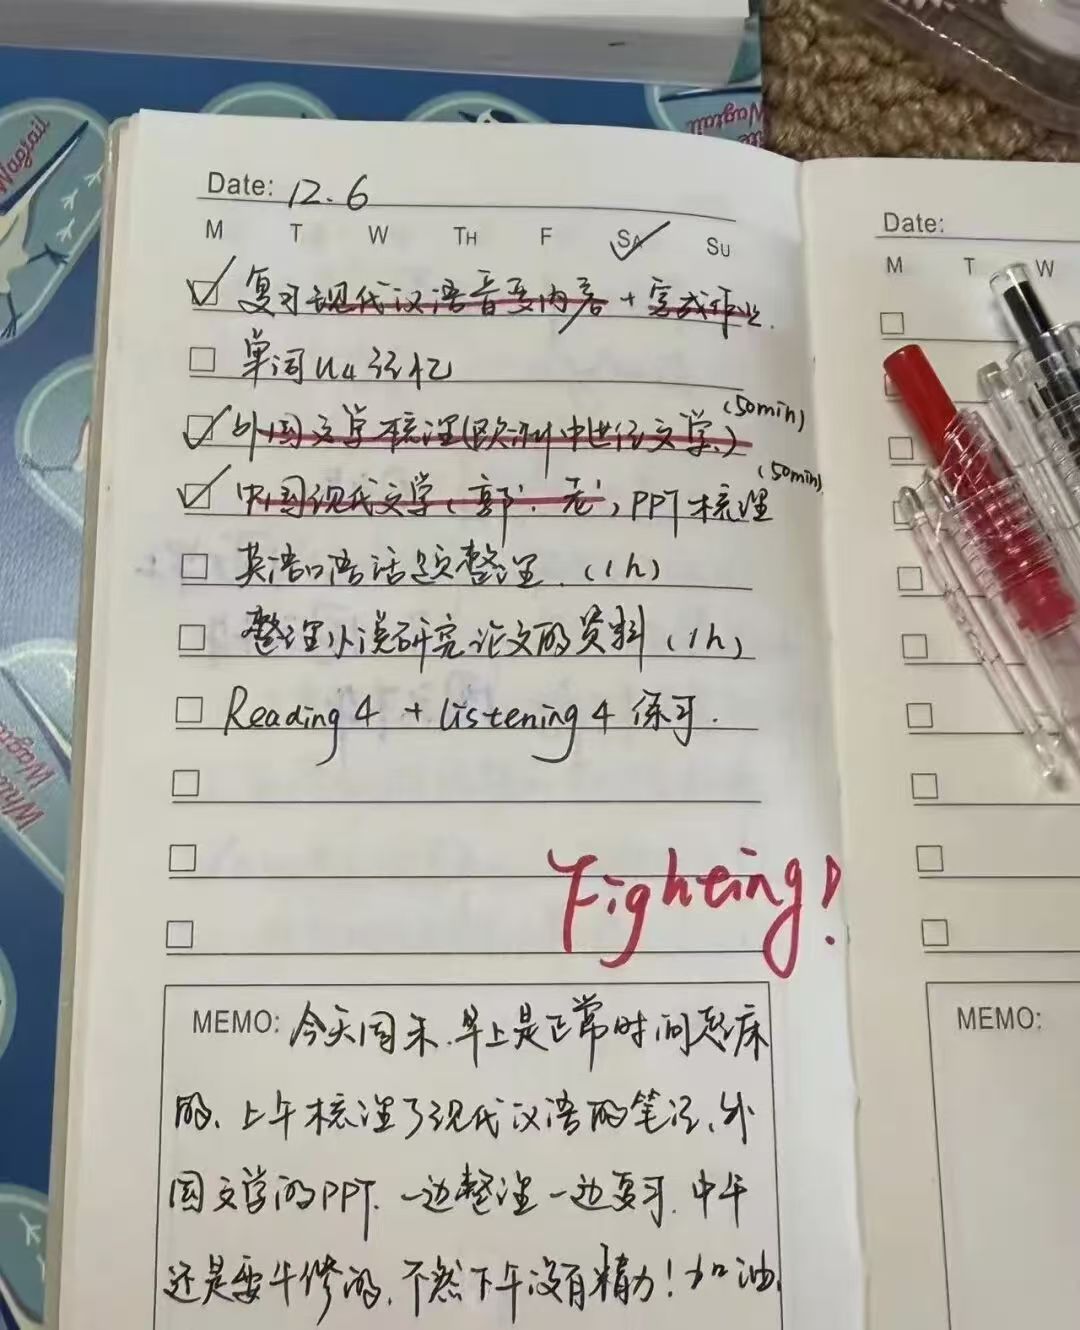 Wagtail
Wagtail
Date: 12.6
M T W TH F SA SU
复习现代汉语音变内容 + 完成作业.
单词U4记忆
外国文学梳理(欧洲中世纪文学) (50min)
中国现代文学(郭、老), PPT梳理 (50min)
英语口语话题整理. (1h)
整理小说研究论文的资料 (1h)
Reading 4 + Listening 4 练习.
Fighting!
MEMO: 今天周末.早上是正常时间起床
的、上午梳理了现代汉语的笔记、外
国文学的PPT. 一边整理一边复习. 中午
还是要午休的、不然下午没有精力! 加油.
Date:
M T W
MEMO: